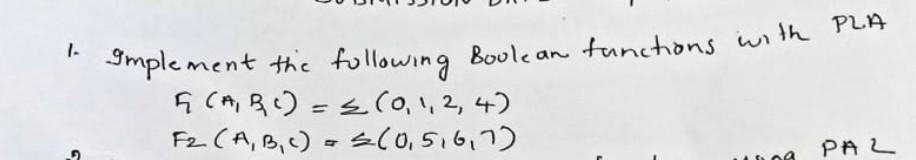 1. Implement the following Boolean functions with PLA
F1 (A, B, C) = Σ (0, 1, 2, 4)
F2 (A, B, C) = Σ (0, 5, 6, 7)
PAL